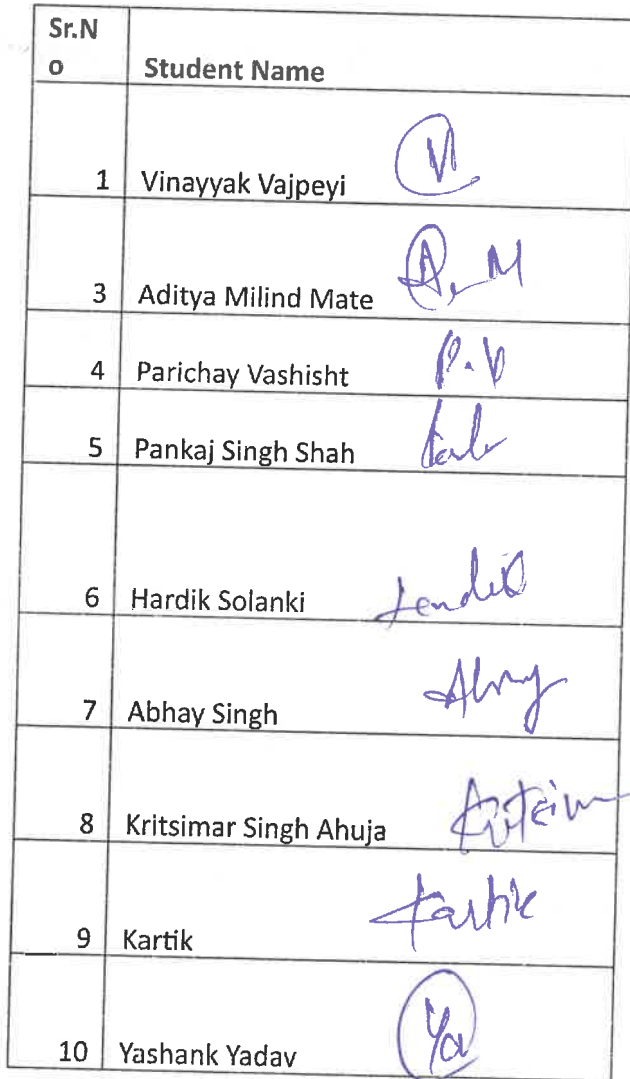 Sr.N
o
Student Name
1 Vinayyak Vajpeyi V
3 Aditya Milind Mate A. M
4 Parichay Vashisht P.V
5 Pankaj Singh Shah
6 Hardik Solanki
7 Abhay Singh
8 Kritsimar Singh Ahuja
9 Kartik Kartik
10 Yashank Yadav Ya